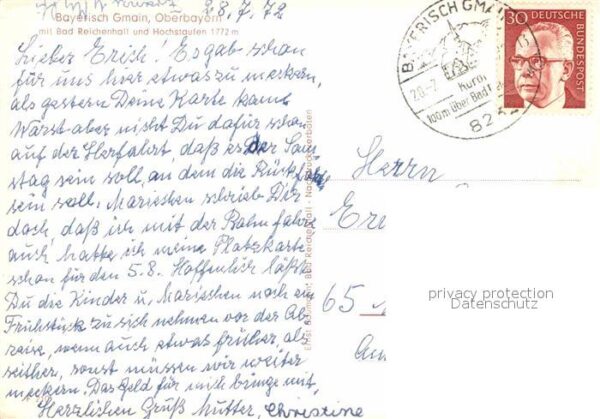 28.7.72
Bayerisch Gmain, Oberbayern
mit Bad Reichenhall und Hochstaufen 1772 m
Lieber Erich! Es gab schon
für uns hier etwas zu meckern,
als gestern Deine Karte kam.
Warst aber nicht Du dafür schon
auf der Herfahrt, daß es der Sams
tag sein soll, an dem die Rückfahrt
sein soll. Mariechen schrieb Dir
doch, daß ich mit der Bahn fahre
auch hatte ich meine Platzkarte
schon für den 5.8. Hoffentlich läßt
Du die Kinder u. Mariechen noch ein
Frühstück zu sich nehmen vor der Ab-
reise, wenn auch etwas früher, als
seither, sonst müssen wir weiter
meckern. Das Geld für mich bringe mit.
Herzlichen Gruß Mutter, Christine
BAYERISCH GMAIN
100m über Bad
30 DEUTSCHE
BUNDESPOST
Herrn
65
privacy protection
Datenschutz